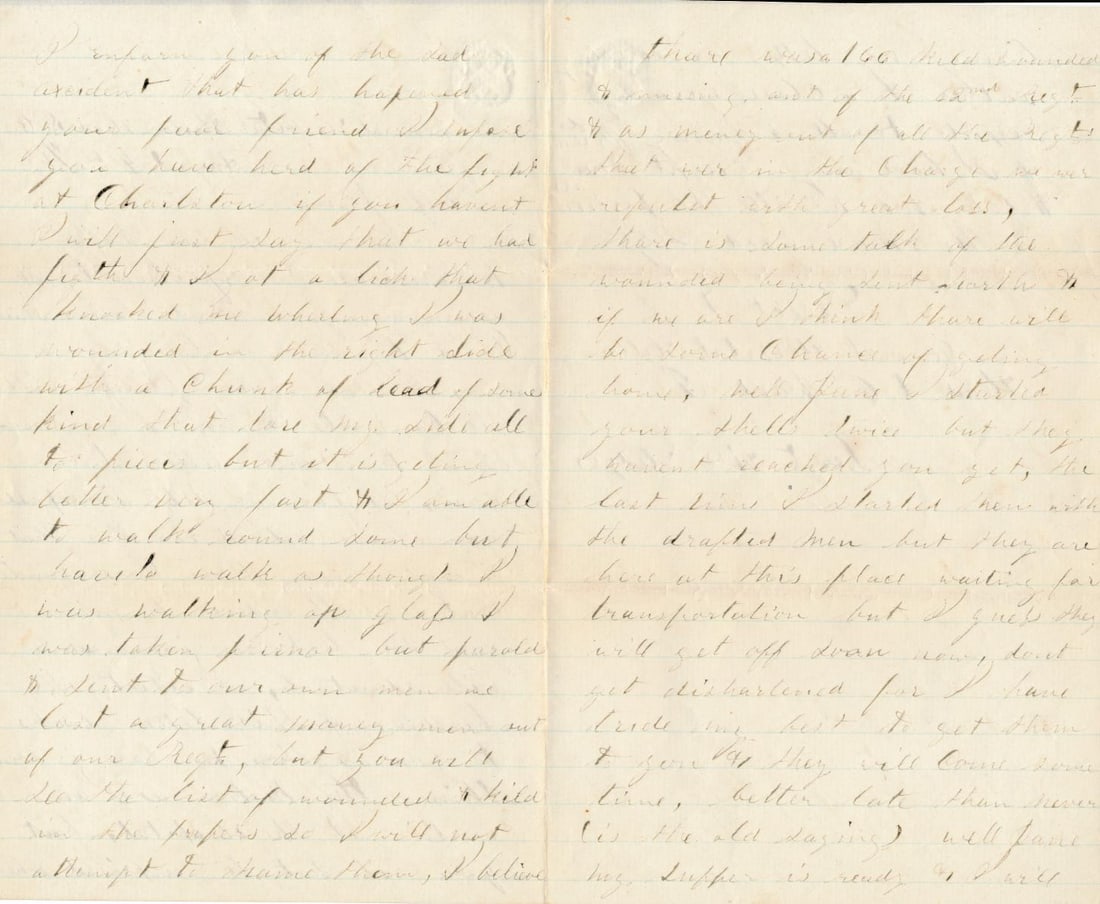 I inform you of the sad
axident that has hapened
your poor friend I supose
you have herd of the fight
at Charleston if you havent
I will just say that we had
figth & I got a lick that
knocked me wherling I was
wounded in the right side
with a Chunk of lead of some
kind that tore my side all
to pieces but it is geting
better very fast & I am able
to walk round some but
have to walk as though I
was walking on glass I
was taken prisnor but parold
& sent to our own men we
lost a great maney men out
of our Regt, but you will
see the list of wounded & kild
in the papers so I will not
attempt to name them, I believe
thare was 160 kild wounded
& missing out of the 62nd Regt
& as meney out of all the Regts
that wer in the Charge we wer
repulst with great loss,
thare is some talk of the
wounded being sent North &
if we are I think thare will
be some Chance of geting
home, well Jane I started
your shells twice but they
havent reached you yet, the
last time I started them with
the drafted men but they are
here at this place waiting for
transportation but I guess they
will get off soon now, dont
get dishartened for I have
tride my best to get them
to you & they will Come some
time, better late than never
(is the old saying) well Jane
my supper is ready & I will